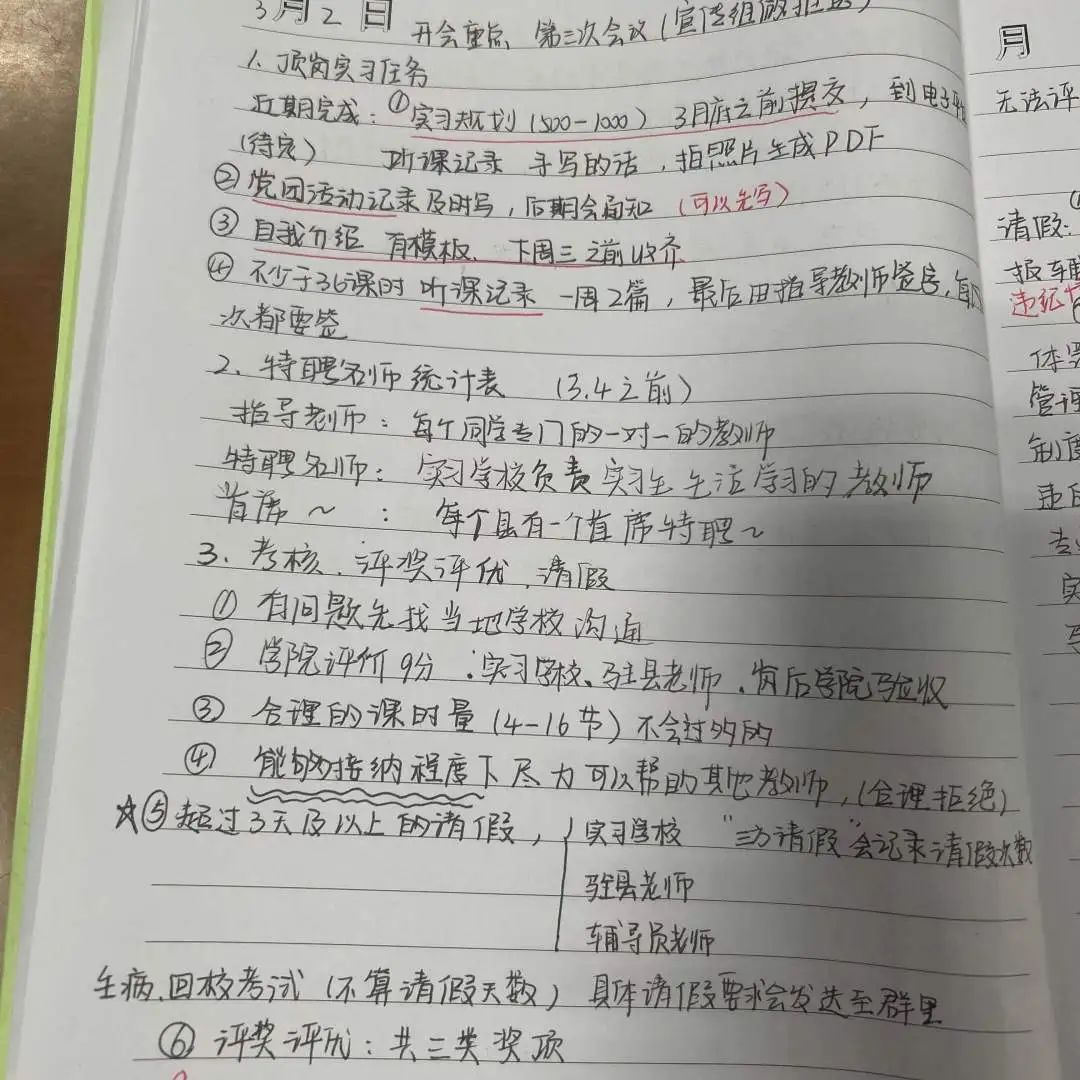 3月2日
开会重点 第三次会议(宣传组做推送)
1、顶岗实习任务
近期完成:①实习规划(500-1000) 3月底之前提交,到电子平
(待定) 听课记录 手写的话,拍照片生成PDF
②党团活动记录及时写,后期会通知 (可以先写)
③自我介绍 有模板、下周三之前收齐
④不少于36课时 听课记录 一周2篇,最后由指导教师签字,每
次都要签
2、特聘名师统计表 (3.4之前)
指导老师:每个同学专门的一对一的教师
特聘名师:实习学校负责实习生生活学习的教师
首席~ : 每个县有一个首席特聘~
3、考核、评奖评优、请假
①有问题先找当地学校沟通
②学院评价9分.实习学校、驻县老师、岗后学院验收
③合理的课时量(4-16节)不会过多的
④能够接纳程度下尽力可以帮的其他教师,(合理拒绝)
☆⑤超过3天及以上的请假, 实习学校 "三方请假"会记录请假次数
驻县老师
辅导员老师
生病、回校考试(不算请假天数) 具体请假要求会发送至群里
⑥评奖评优:共三类奖项
月
无法评
请假:①
报辅
违纪
管理
制度